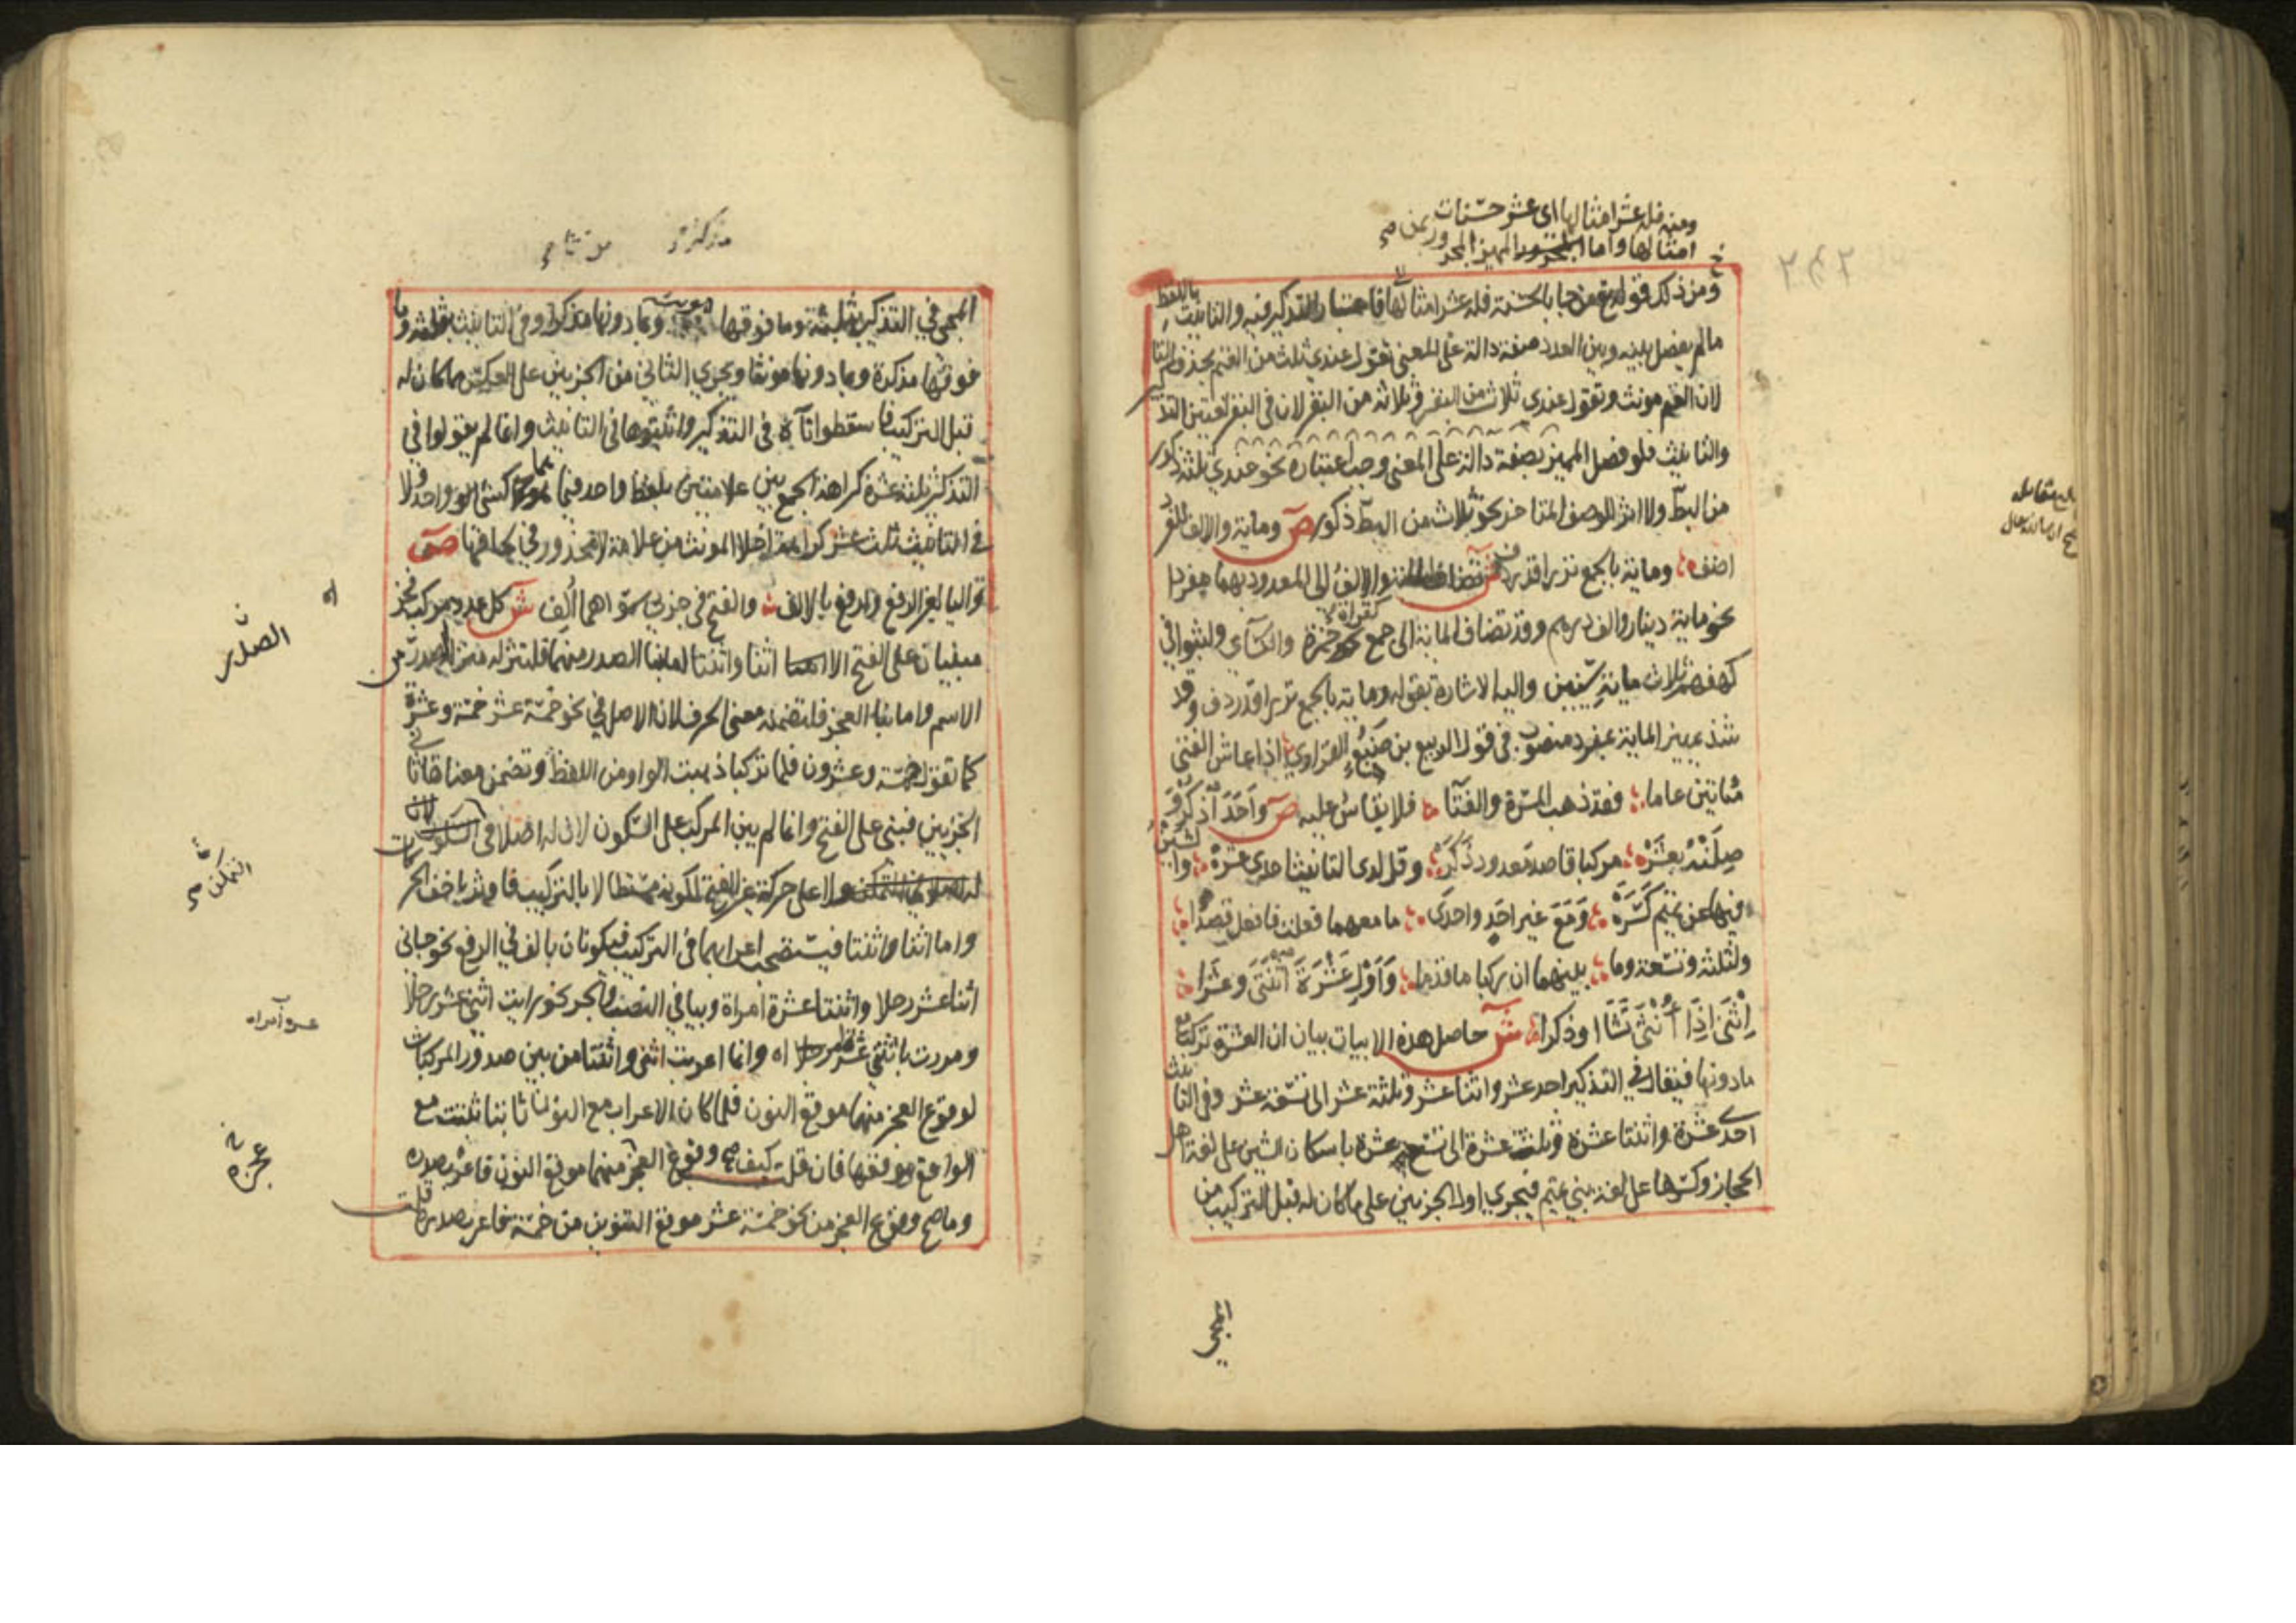 ومنه فله عشر امثالها اى عشر حسنات
امثالها واما المميز المجرور بمن صح
ومن ذلك قوله تع من جا بالحسنة فله عشر امثالها فاعتبار التذكير فيه والتانيث باللفظ
مالم يفصل بينه وبين العدد صفة دالة على المعنى تقول عندي ثلث من الغنم بحذف التا
لان الغنم مونث وتقول عندي ثلاث من النفر وثلاثة من النفر لان في النفر لغتين التذكير
والتانيث فلو فصل المميز بصفة دالة على المعنى وجب اعتباره نحو عندي ثلثة ذكور
من البط ولا اثر للوصف المتاخر نحو ثلاث من البط ذكور ص وماية والالف للفرد
اضف وماية بالجمع نزرا قد ردف ش تضاف الماية والالف الى المعدود بهما مفردا
نحو ماية دينار والف درهم وقد تضاف الماية الى جمع كقراة حمزة والكسآي ولبثوا في
كهفهم ثلاث ماية سنين واليه الاشارة بقوله وماية بالجمع نزرا قد ردف وقد
شذ تمييز الماية بمفرد منصوب في قول الربيع بن ضبع الفزاوي اذا عاش الفتى
مايتين عاما فقد ذهب المسرة والفتآ فلا يقاس عليه ص واحد اذكر و
صلنه بعشره مركبا قاصد معدود ذكر وقل لدى التانيث احدى عشرة والشين
فيها عن تميم كسره ومع غير احد واحدى ما معهما فعلت فافعل قصدا
ولثلثة وتسعة وما بينهما ان ركبا ما قدما واول عشرة اثنتى وعشرا
اثنى اذا انثى تشا او ذكرا ش حاصل هذه الابيات بيان ان العشرة تركب مع
مادونها فيقال في التذكير احد عشر واثنا عشر وثلثة عشر الى تسعة عشر وفي التانيث
احدى عشرة واثنتا عشرة وثلث عشرة الى تسع عشرة باسكان الشين على لغة اهل
الحجاز وكسرها على لغة بني تميم فيجري اول الجزءين على ماكان له قبل التركيب من
المجي
المجي في التذكير بثلثة وما فوقها وبما دونها مذكرا وفي التانيث بثلث وما
فوقها مذكرة وما دونها مونثا ويجري الثاني من الجزءين على العكس مما كان له
قبل التركيب فاسقطوا تآءه في التذكير واثبتوها في التانيث وانما لم يقولوا في
التذكير ثلثة عشرة كراهة الجمع بين علامتين بلفظ واحد فيما كشئ واحد ولا
في التانيث ثلث عشر كراهة اخلا المونث من علامة لامحذور في لحاقها ص
واليا لغير الرفع وارفع بالالف والفتح في جزءي سواهما الف ش كل عدد مركب فجز
مبنيان على الفتح الا اثنا واثنتا اما بنا الصدر منهما فلتنزله منزلة صدر من
الاسم واما بنا العجز فلتضمنه معنى الحرف لان الاصل في نحو خمسة عشر خمسة وعشرة
كما تقول خمسة وعشرون فلما تركبا ذهبت الواو من اللفظ وتضمن معناها ثاني
الجزءين فبني على الفتح وانما لم يبن المركب على السكون لان له اصلا في
ولا على حركة غير الفتح لكونه مستطالا بالتركيب فاوثر باخف الحركات
واما اثنا واثنتا فيستصحب اعرابهما في التركيب فيكونان بالف في الرفع نحو جاني
اثنا عشر رجلا واثنتا عشرة امراة وبيا في النصب والجر نحو رايت اثني عشر رجلا
ومررت باثنتي عشرة اه وانما اعرب اثنى واثنتا من بين صدور المركبات
لوقوع العجز منهما موقع النون فلما كان الاعراب مع النون ثابتا ثبت مع
الواقع موقعها فان قلت كيف صح وقوع العجز منهما موقع النون فاعرب صدره
وماصح وقوع العجز من نحو خمسة عشر موقع التنوين من خمسة فاعرب صدره قلت
الصدر
التمكن صح
عجزه